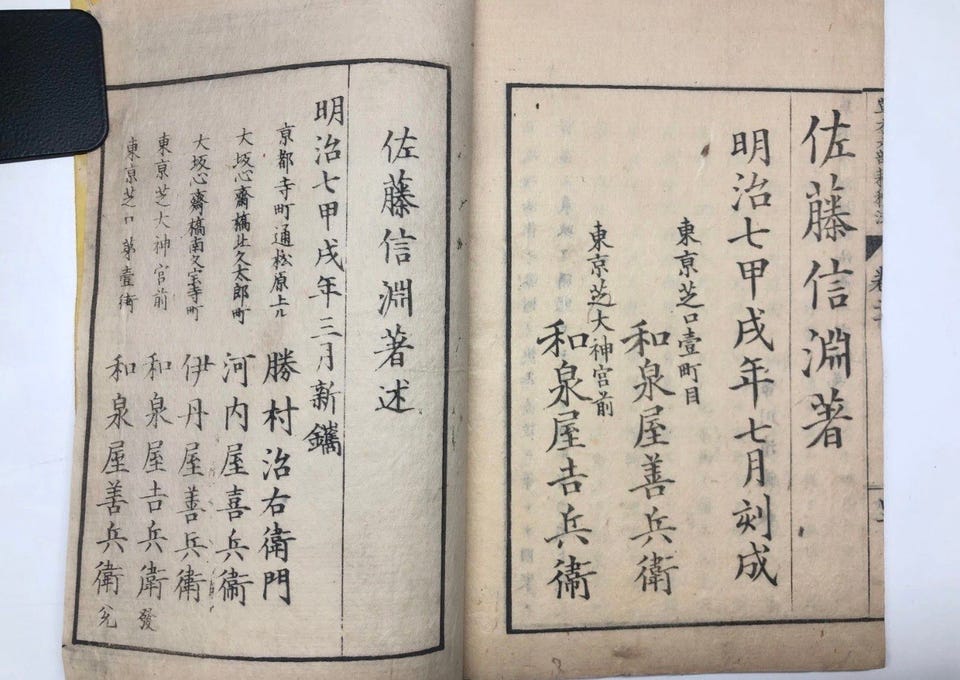 佐藤信淵著
明治七甲戌年七月刻成
東京芝口壹町目
和泉屋善兵衛
東京芝大神宮前
和泉屋吉兵衛
佐藤信淵著述
明治七甲戌年三月新鐫
京都寺町通松原上ル 勝村治右衛門
大坂心齋橋北久太郎町 河内屋喜兵衛
大坂心齋橋南久宝寺町 伊丹屋善兵衛
東京芝大神宮前 和泉屋吉兵衛 發
東京芝口第壹街 和泉屋善兵衛 兌